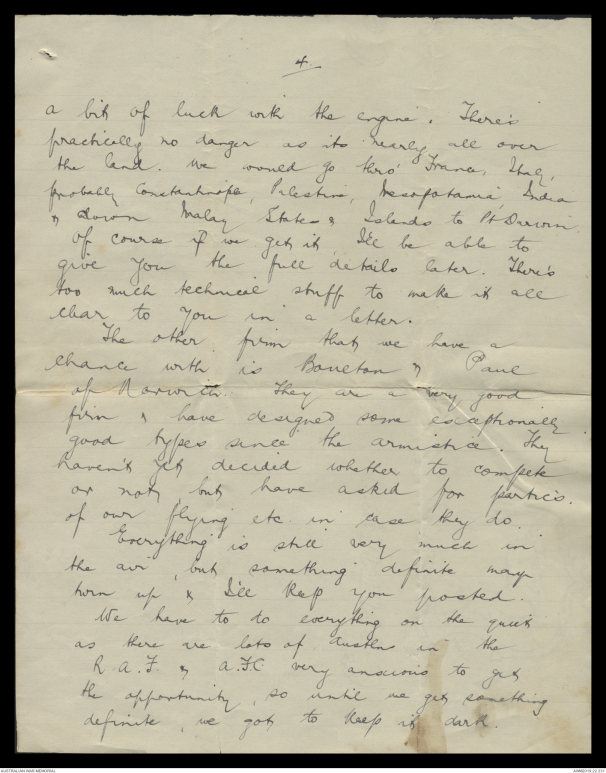 4.
a bit of luck with the engine. There's
practically no danger as its nearly all over
the land. We would go thro' France, Italy,
probably Constantinople, Palestine, Mesopotamia, India
& down Malay States & Islands to Pt Darwin.
Of course if we get it I'll be able to
give you the full details later. There's
too much technical stuff to make it all
clear to you in a letter.
The other firm that we have a
chance with is Boulton & Paul
of Norwich. They are a very good
firm & have designed some exceptionally
good types since the armistice. They
haven't yet decided whether to compete
or not, but have asked for partics.
of our flying etc. in case they do.
Everything is still very much in
the air, but something definite may
turn up & I'll keep you posted.
We have to do everything on the quiet
as there are lots of Austlns in the
R.A.F. & A.F.C very anxious to get
the opportunity, so until we get something
definite, we got to keep it dark.
AUSTRALIAN WAR MEMORIAL